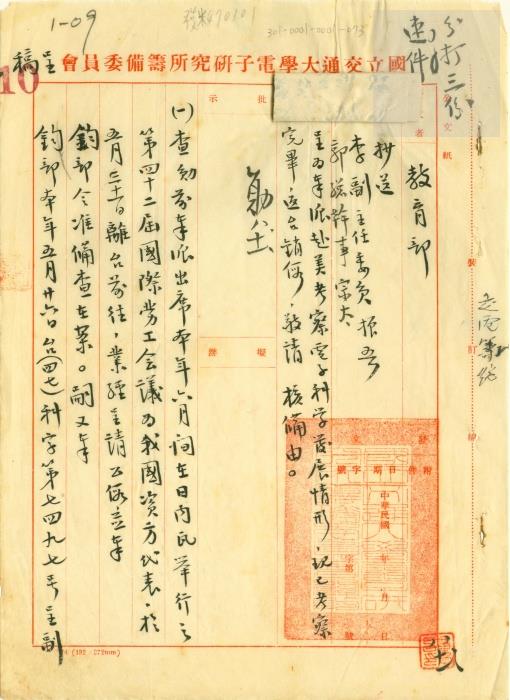 1-09
301-0001-0001-073
分打三份
速件
國立交通大學電子研究所籌備委員會
呈
稿
10
教育部
抄送
李副主任委員振吾
郭總幹事宗太
呈為奉派赴美考察電子科學發展情形，現已考察
完畢，返台銷假，敬請 核備由。
示 批
勛 八七
辦 擬
裝
訂
線
附件 日期 字號
中華民國
年
月
日
字第
號
(一)查勛前奉派出席本年六月間在日內瓦舉行之
第四十二屆國際勞工會議為我國資方代表，於
五月三十一日離台前往，業經呈請公假並奉
鈞部令准備查在案。嗣又奉
鈞部本年五月廿六日台(四七)科字第七四九七號呈副
(192 × 272mm)